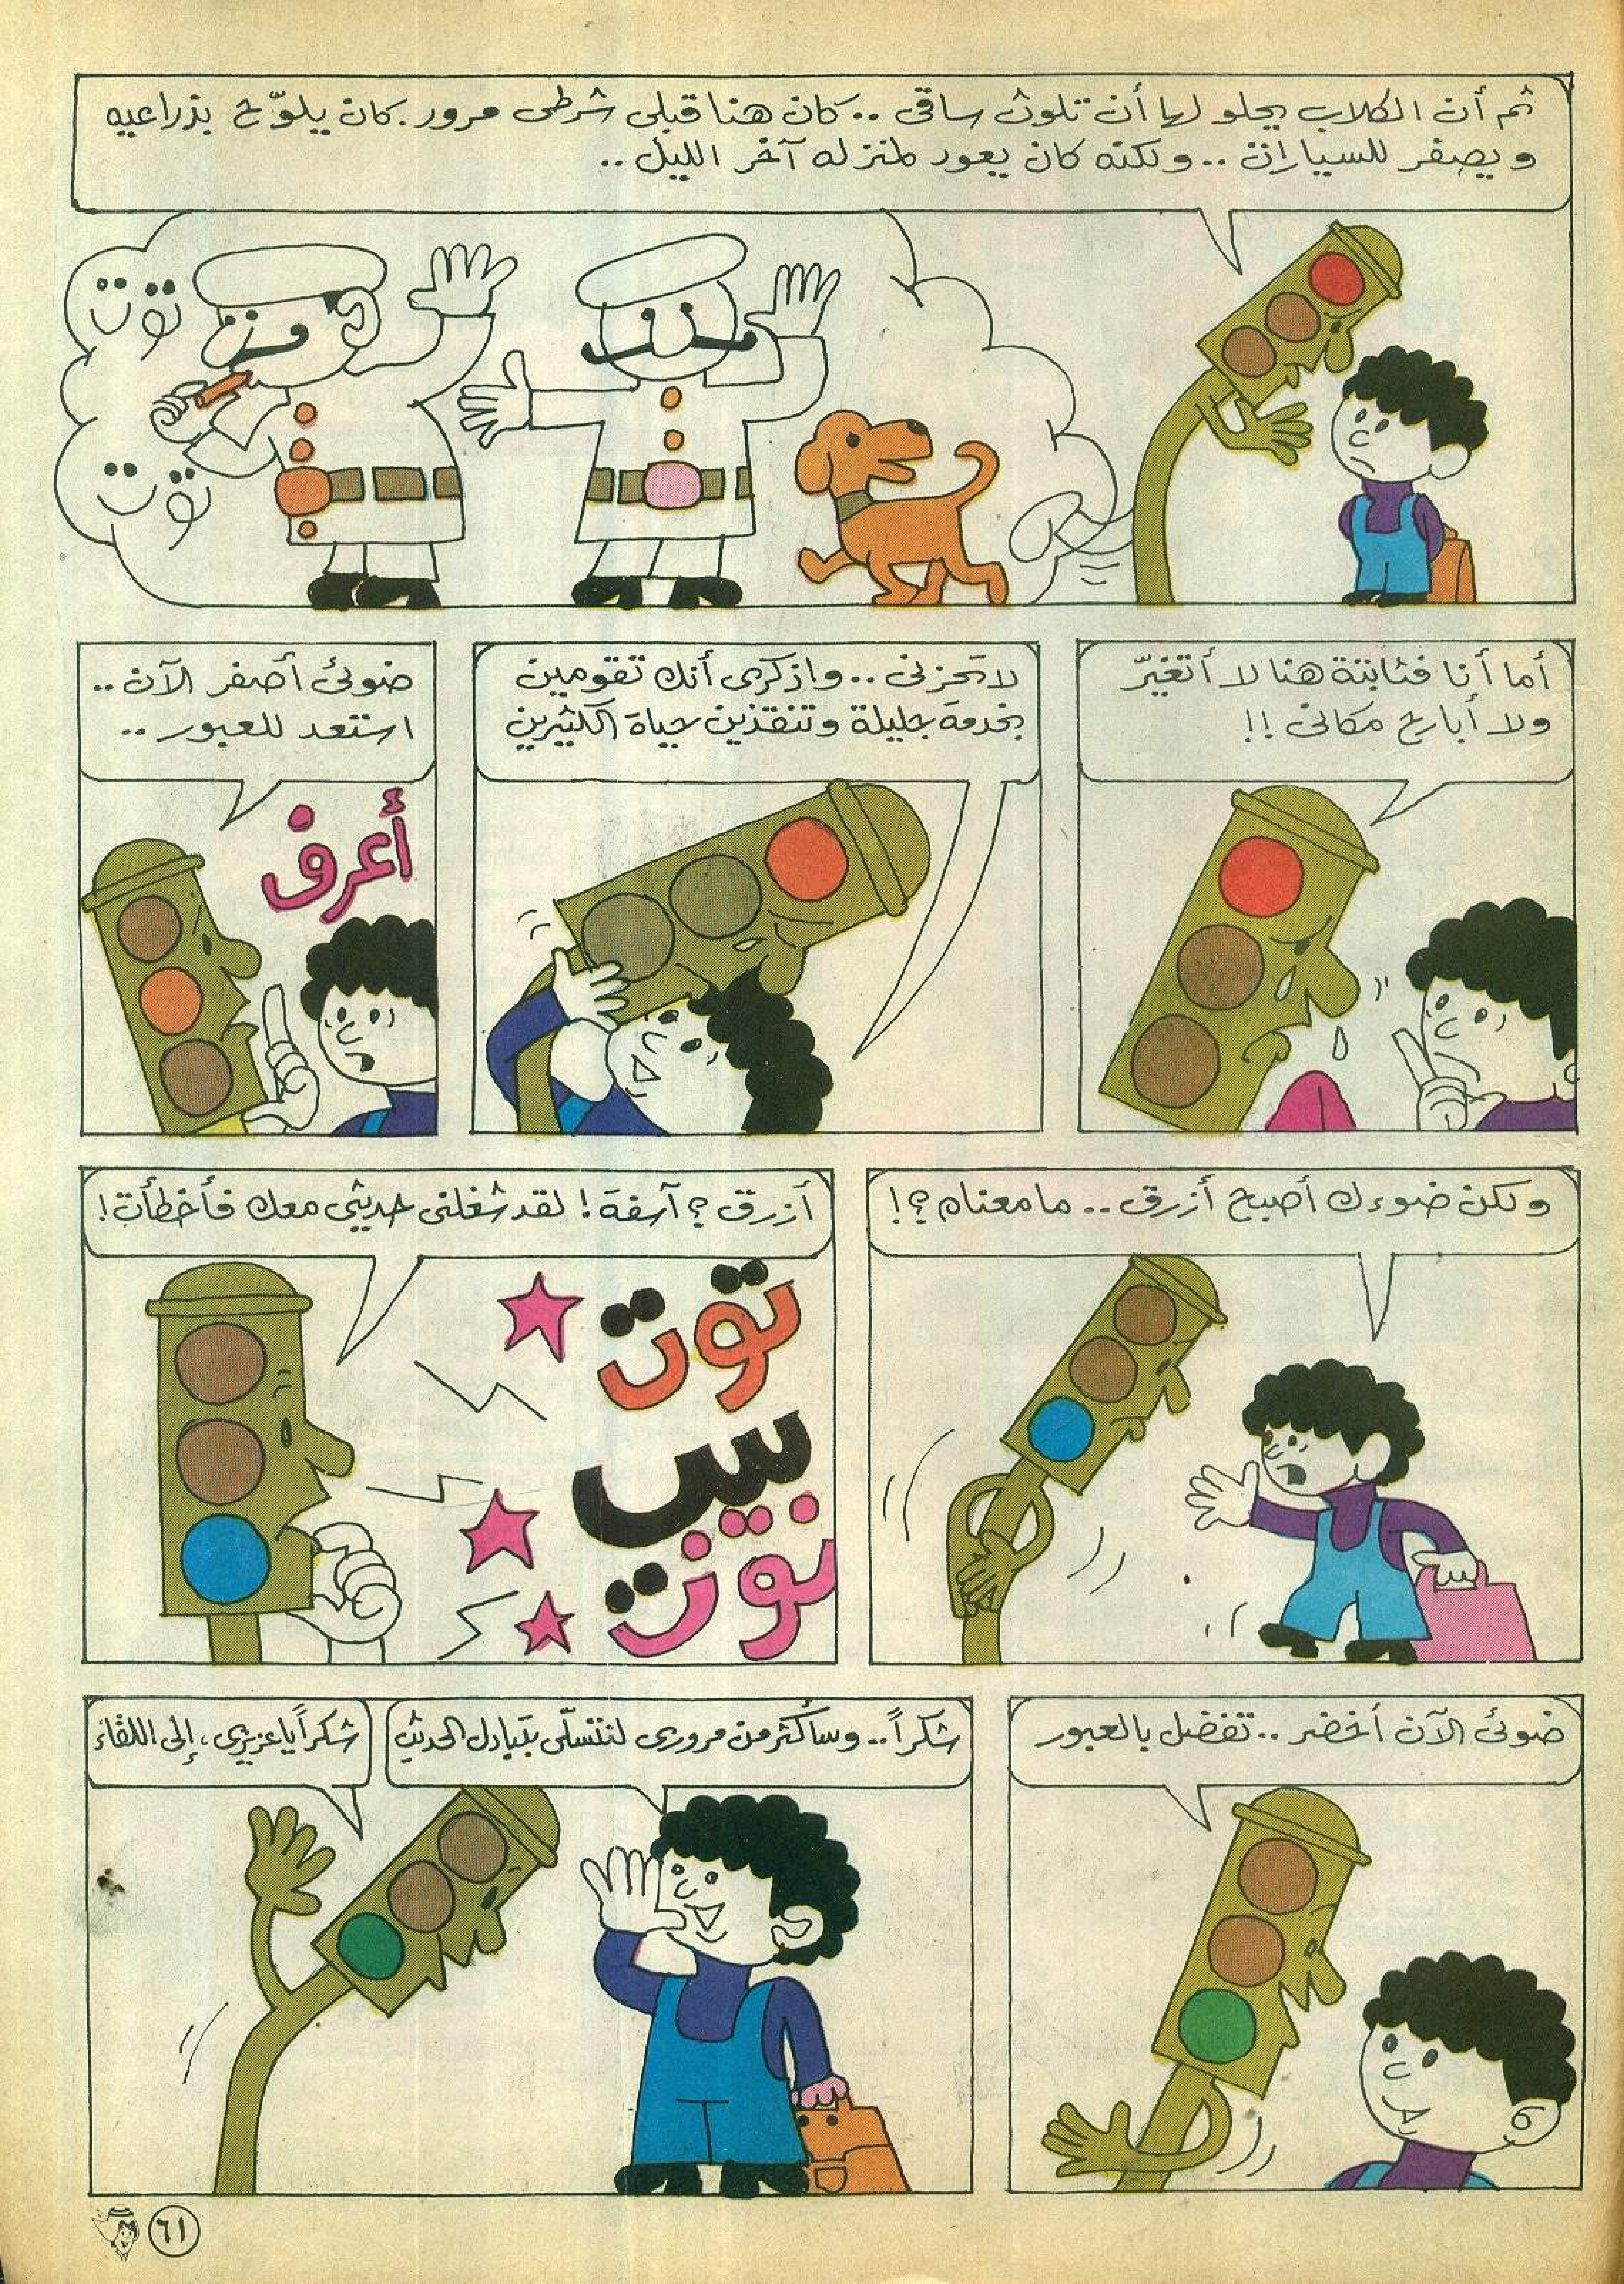 ثم أن الكلاب يحلو لها أن تلوث ساقى .. كان هنا قبلى شرطى مرور. كان يلوّح بذراعيه
ويصفر للسيارات .. ولكنه كان يعود لمنزله آخر الليل ..
توت
توت
أما أنا فثابتة هنا لا أتغيّر
ولا أبارح مكانى !!
لا تحزنى .. واذكرى أنك تقومين
بخدمة جليلة وتنقذين حياة الكثيرين
ضوئى أصفر الآن ..
استعد للعبور ..
أعرف
ولكن ضوءك أصبح أزرق .. ما معناه ؟!
أزرق ؟ آسفة ! لقد شغلنى حديثى معك فأخطأت !
توت
س
توت
ضوئى الآن أخضر .. تفضل بالعبور
شكراً .. وسأكثر من مرورى لنتسلّى بتبادل الحديث
شكراً يا عزيزى ، إلى اللقاء
٦١